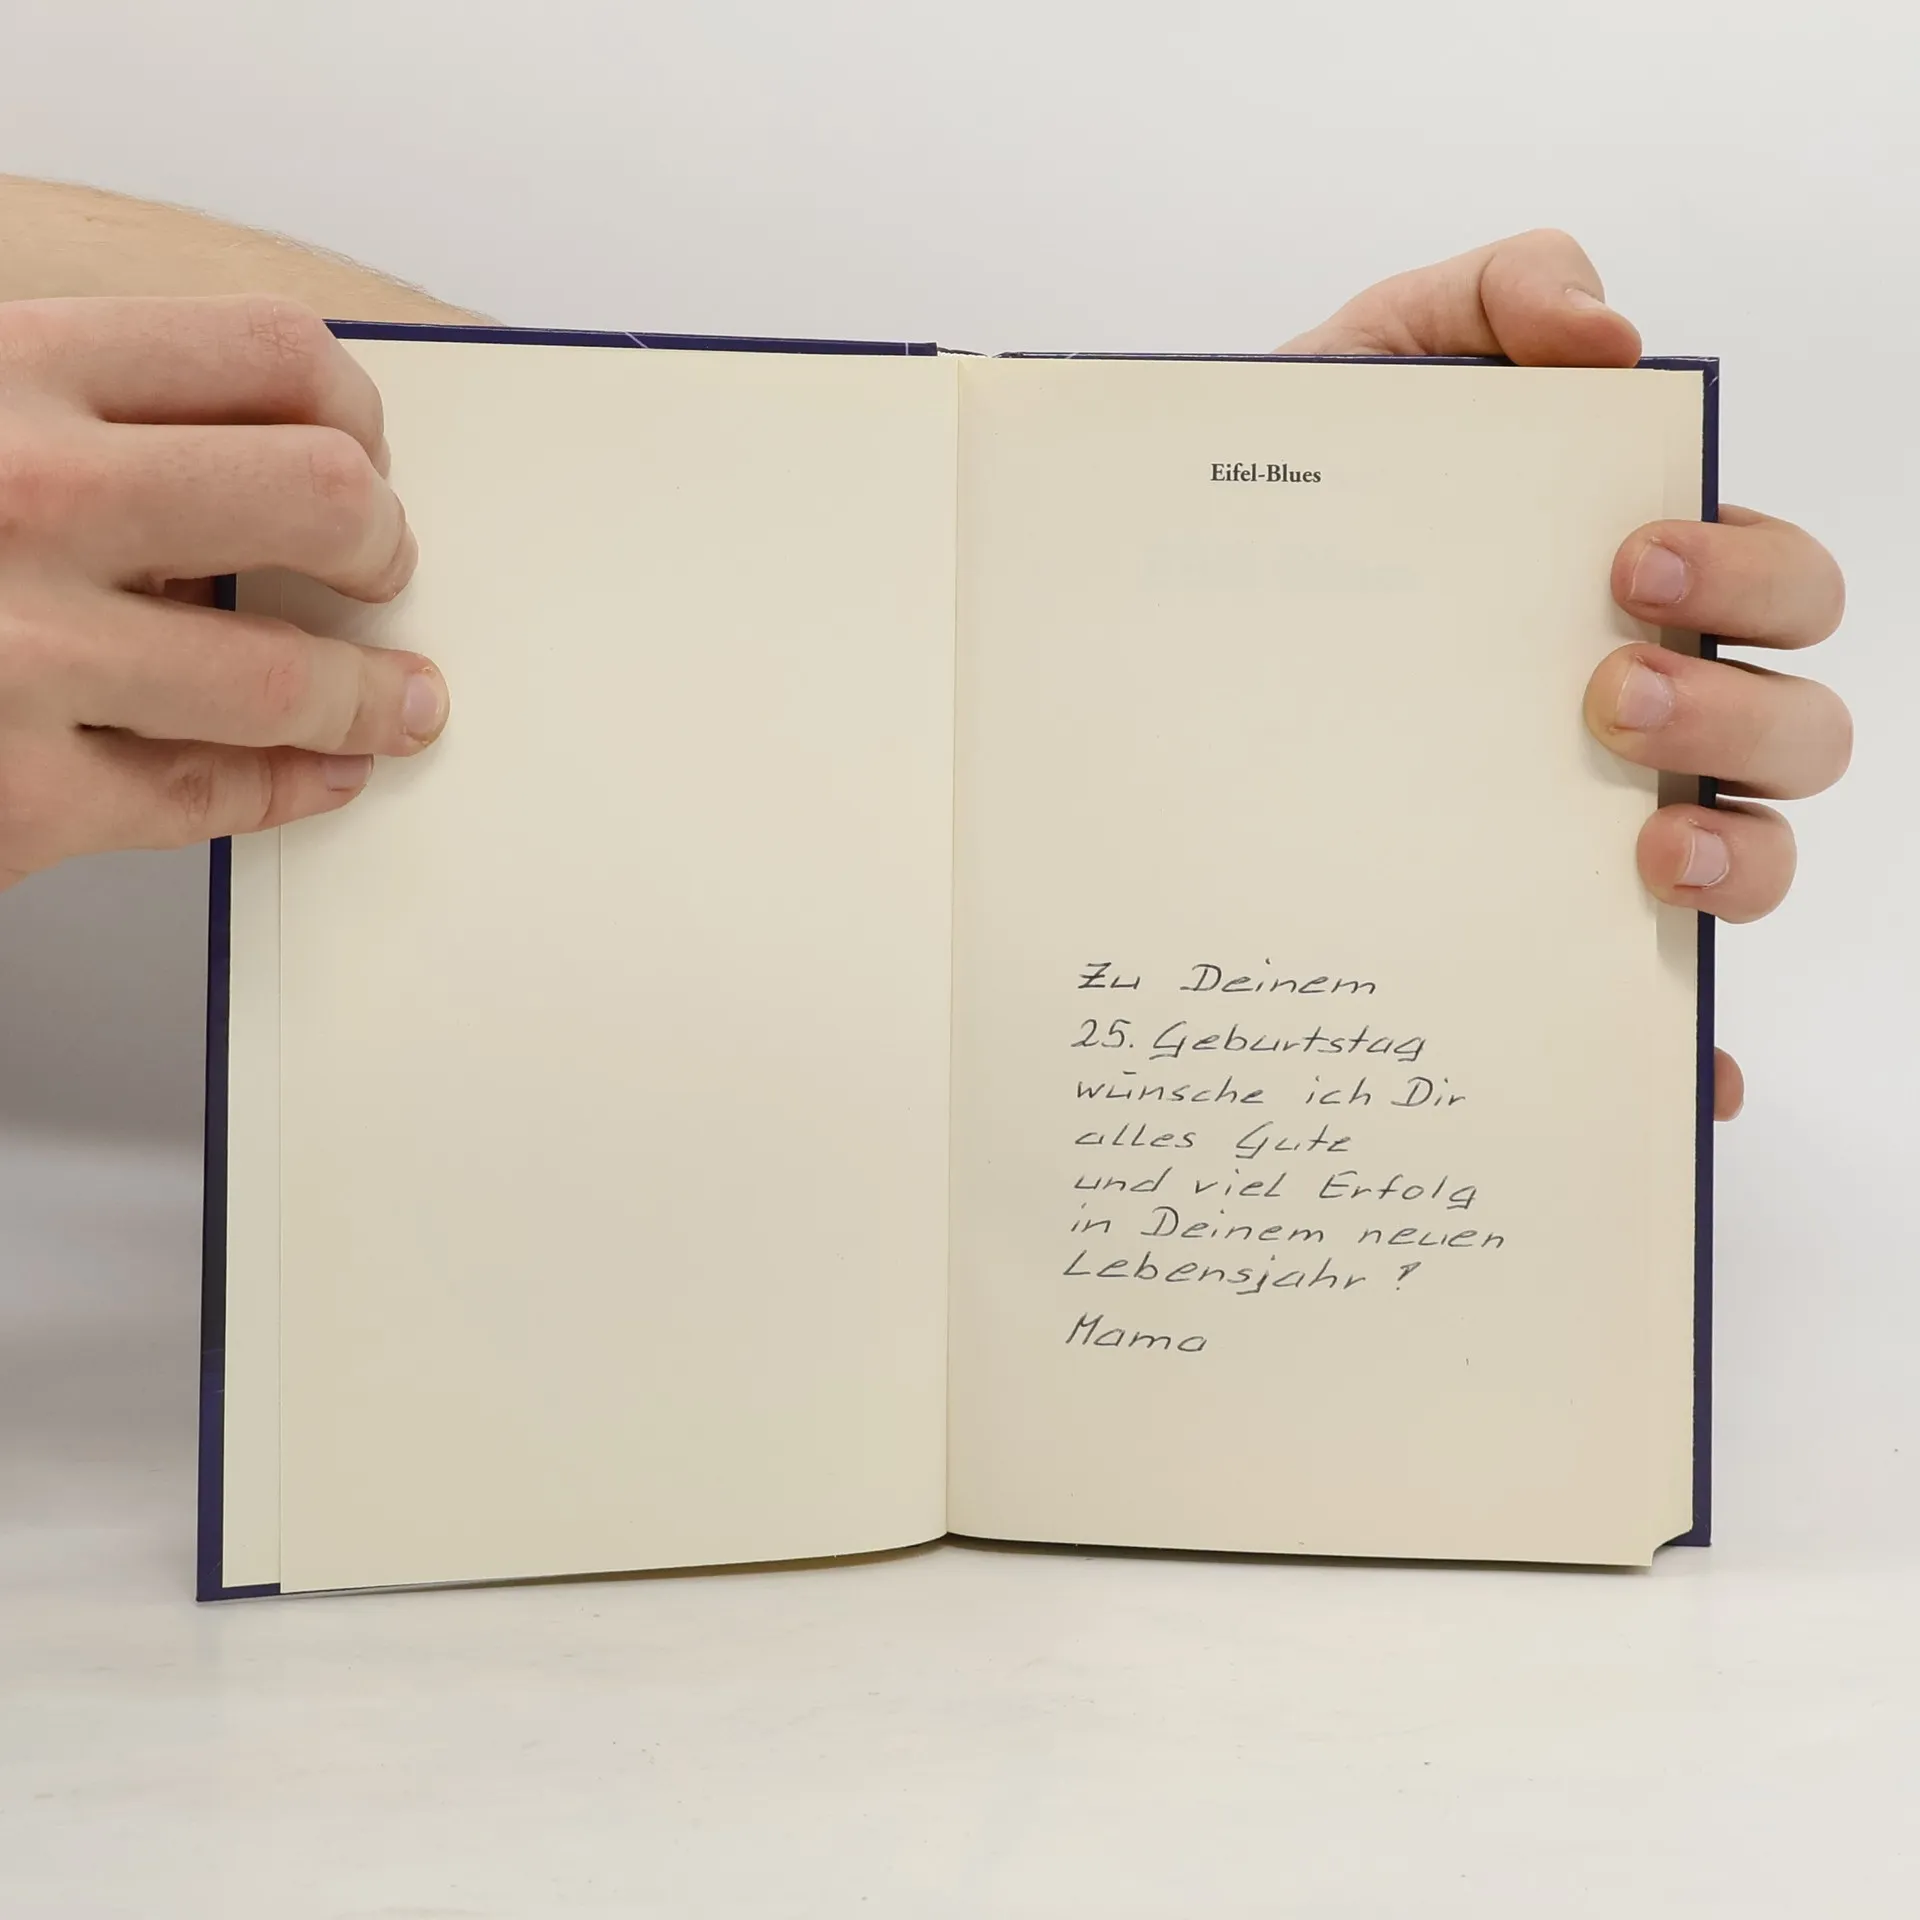 Eifel-Blues
Zu Deinem
25. Geburtstag
wünsche ich Dir
alles Gute
und viel Erfolg
in Deinem neuen
Lebensjahr!
Mama